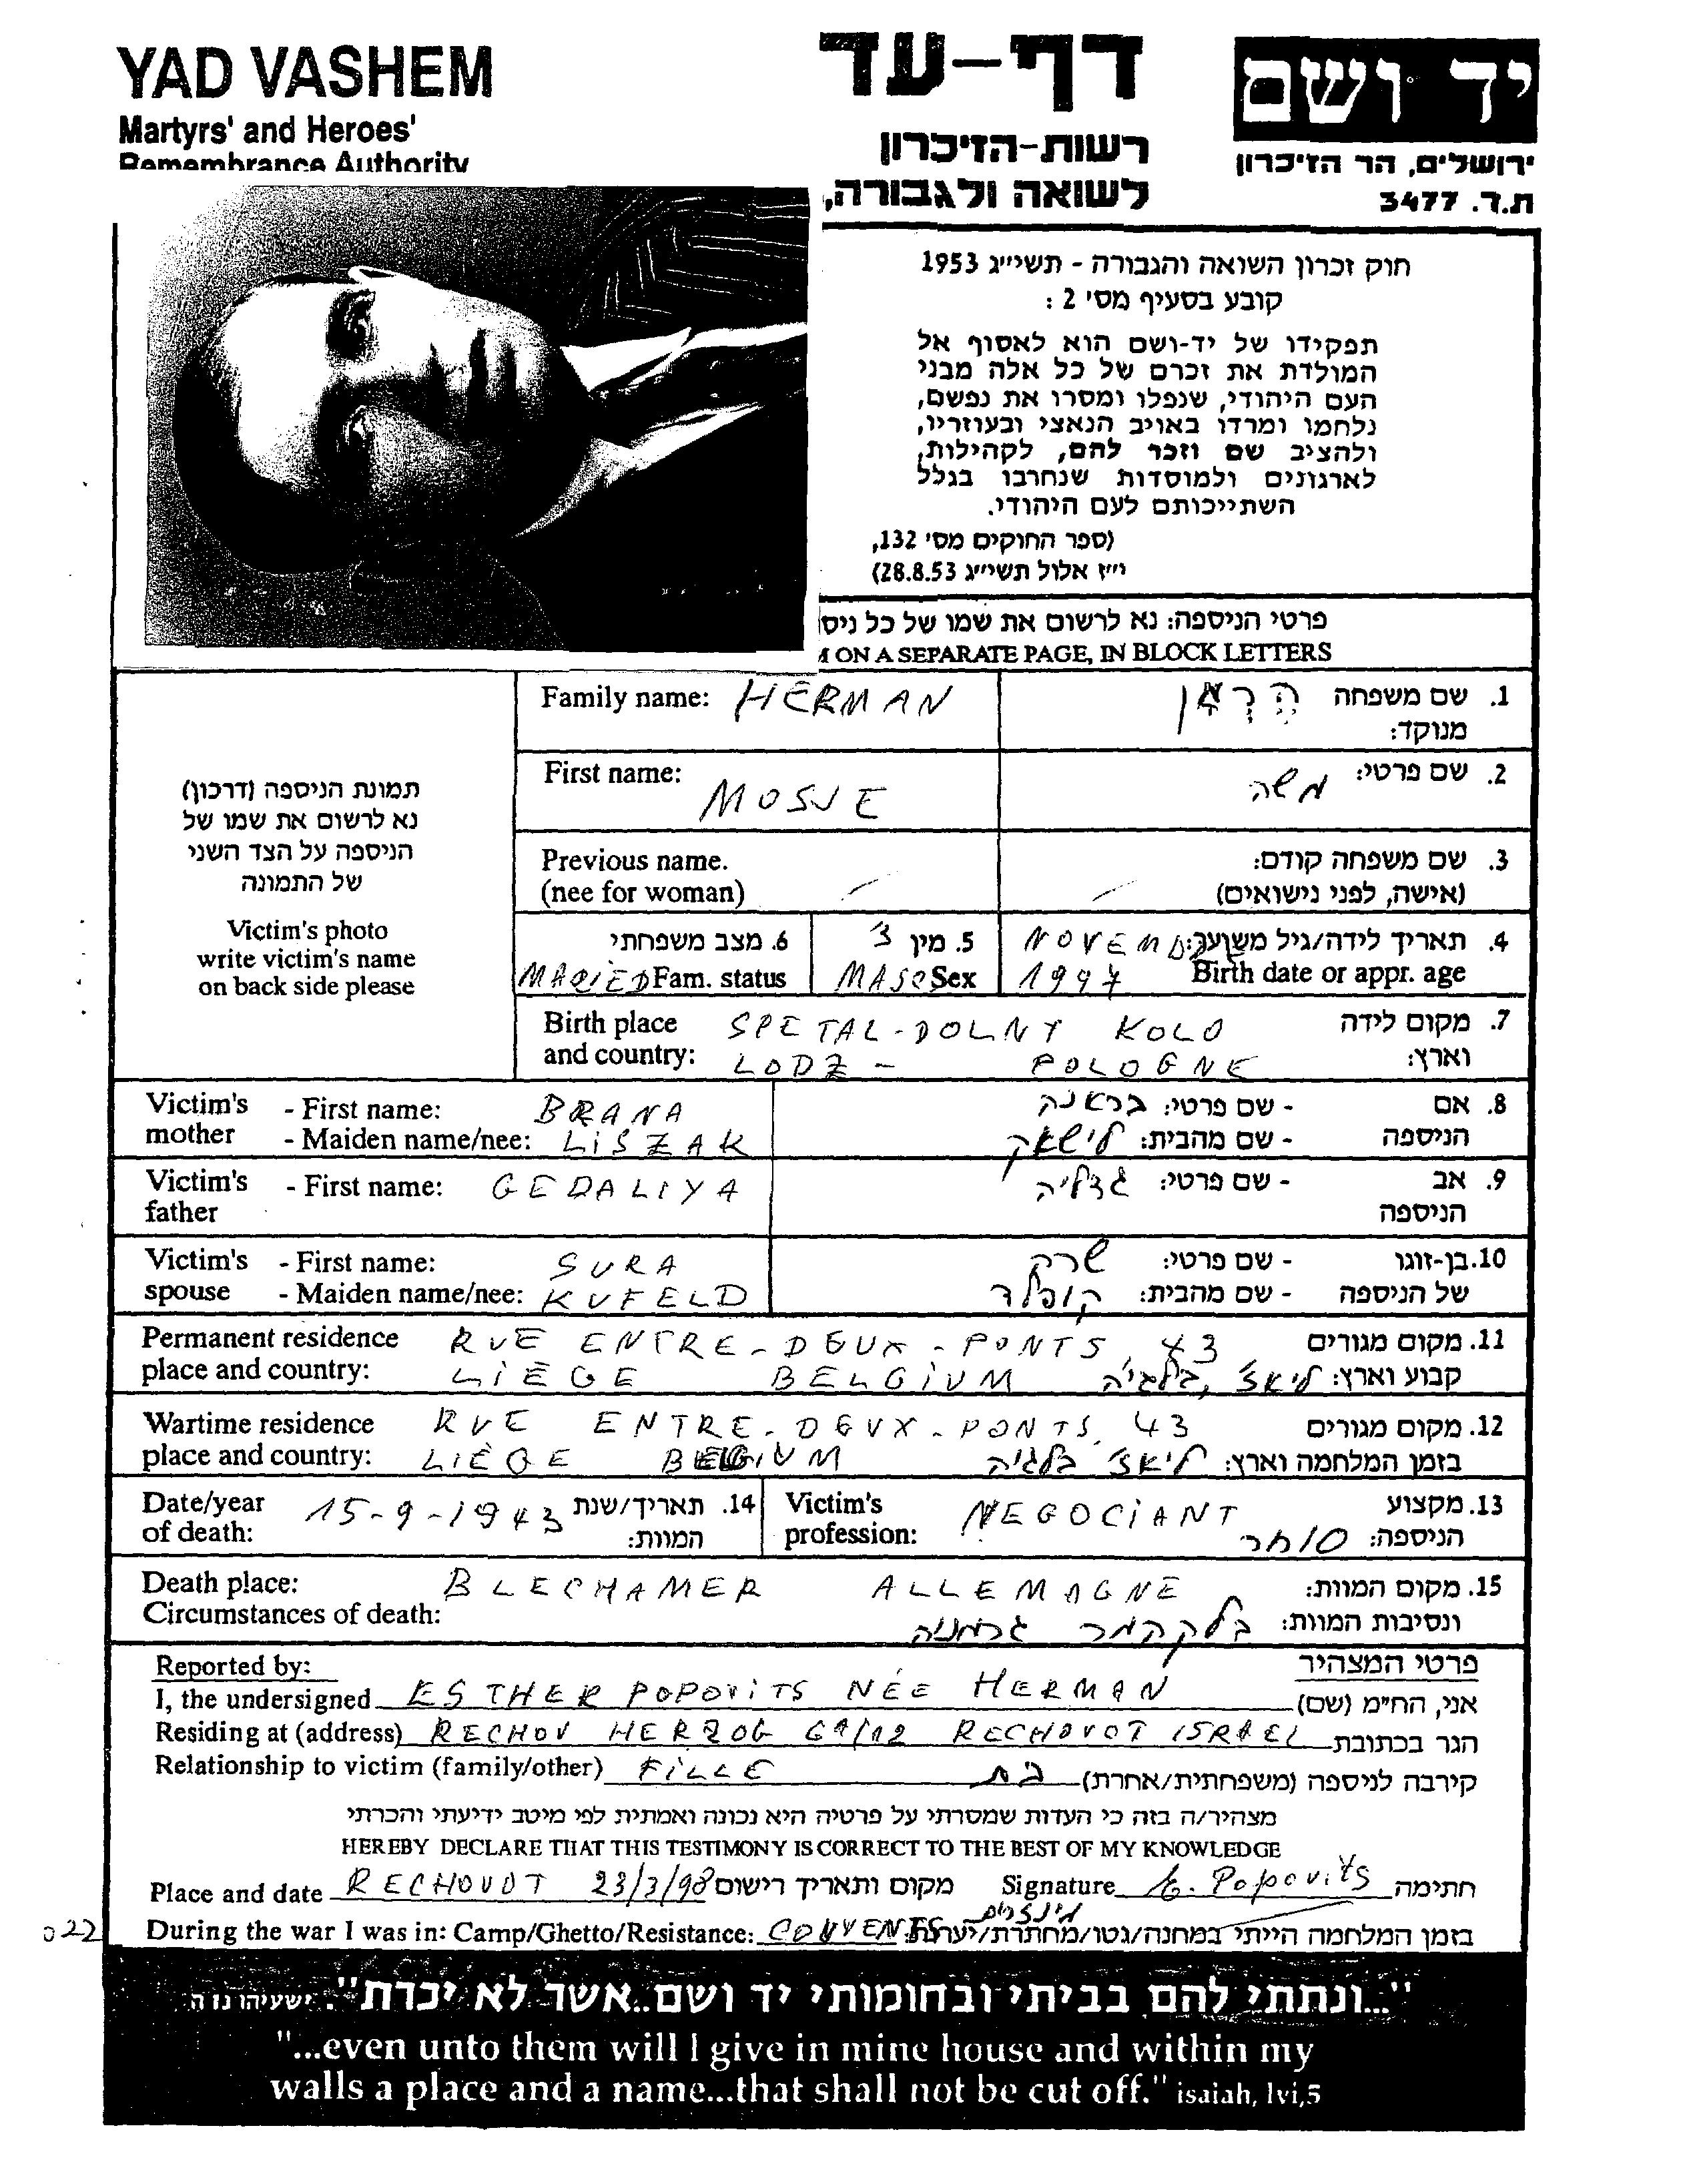 YAD VASHEM
Martyrs' and Heroes'
Remembrance Authority
דף-עד
רשות-הזיכרון
לשואה ולגבורה,
יד ושם
ירושלים, הר הזיכרון
ת.ד. 3477
חוק זכרון השואה והגבורה - תשי״ג 1953
קובע בסעיף מס׳ 2 :
תפקידו של יד-ושם הוא לאסוף אל
המולדת את זכרם של כל אלה מבני
העם היהודי, שנפלו ומסרו את נפשם,
נלחמו ומרדו באויב הנאצי ובעוזריו,
ולהציב שם וזכר להם, לקהילות,
לארגונים ולמוסדות שנחרבו בגלל
השתייכותם לעם היהודי.
(ספר החוקים מס׳ 132,
י״ז אלול תשי״ג 28.8.53)
פרטי הניספה: נא לרשום את שמו של כל ניס
ON A SEPARATE PAGE, IN BLOCK LETTERS
תמונת הניספה (דרכון)
נא לרשום את שמו של
הניספה על הצד השני
של התמונה
Victim's photo
write victim's name
on back side please
Family name: HERMAN הֶרְמָן 1. שם משפחה
מנוקד:
First name: MOSJE משה 2. שם פרטי:
Previous name. 3. שם משפחה קודם:
(nee for woman) (אישה, לפני נישואים)
6. מצב משפחתי 5. מין ז 4. תאריך לידה/גיל משוער:
MARIED Fam. status MASC Sex Birth date or appr. age
Birth place SPETAL-DOLNY KOLO 7. מקום לידה
and country: LODZ - POLOGNE וארץ:
Victim's - First name: BRANA בראנה - שם פרטי: 8. אם
mother - Maiden name/nee: LISZAK לישאק - שם מהבית: הניספה
Victim's - First name: GEDALIYA גדליה - שם פרטי: 9. אב
father הניספה
Victim's - First name: SURA שרה - שם פרטי: 10. בן-זוגו
spouse - Maiden name/nee: KUFELD קופלד - שם מהבית: של הניספה
Permanent residence RUE ENTRE-DEUX-PONTS, 43 11. מקום מגורים
place and country: LIÈGE BELGIUM ליאז׳, בלגיה קבוע וארץ:
Wartime residence RUE ENTRE-DEUX-PONTS, 43 12. מקום מגורים
place and country: LIÈGE BELGIUM ליאז׳ בלגיה בזמן המלחמה וארץ:
Date/year 15-9-1943 14. תאריך/שנת Victim's NEGOCIANT 13. מקצוע
of death: המוות: profession: סוחר הניספה:
Death place: BLECHAMER ALLEMAGNE 15. מקום המוות:
Circumstances of death: בלקהמר גרמניה ונסיבות המוות:
Reported by: פרטי המצהיר
I, the undersigned ESTHER POPOVITS NÉE HERMAN אני, הח״מ (שם)
Residing at (address) RECHOV HERZOG 69/12 RECHOVOT ISRAEL הגר בכתובת
Relationship to victim (family/other) FILLE בת קירבה לניספה (משפחתית/אחרת)
מצהיר/ה בזה כי העדות שמסרתי על פרטיה היא נכונה ואמתית לפי מיטב ידיעתי והכרתי
HEREBY DECLARE THAT THIS TESTIMONY IS CORRECT TO THE BEST OF MY KNOWLEDGE
Place and date RECHOVOT 23/3/98 מקום ותאריך רישום Signature E. Popovits חתימה
022 During the war I was in: Camp/Ghetto/Resistance: CONVENTS מינזרים בזמן המלחמה הייתי במחנה/גטו/מחתרת/יערות
"...ונתתי להם בביתי ובחומותי יד ושם..אשר לא יכרת". ישעיהו נו ה
"...even unto them will I give in mine house and within my
walls a place and a name...that shall not be cut off." isaiah, lvi,5